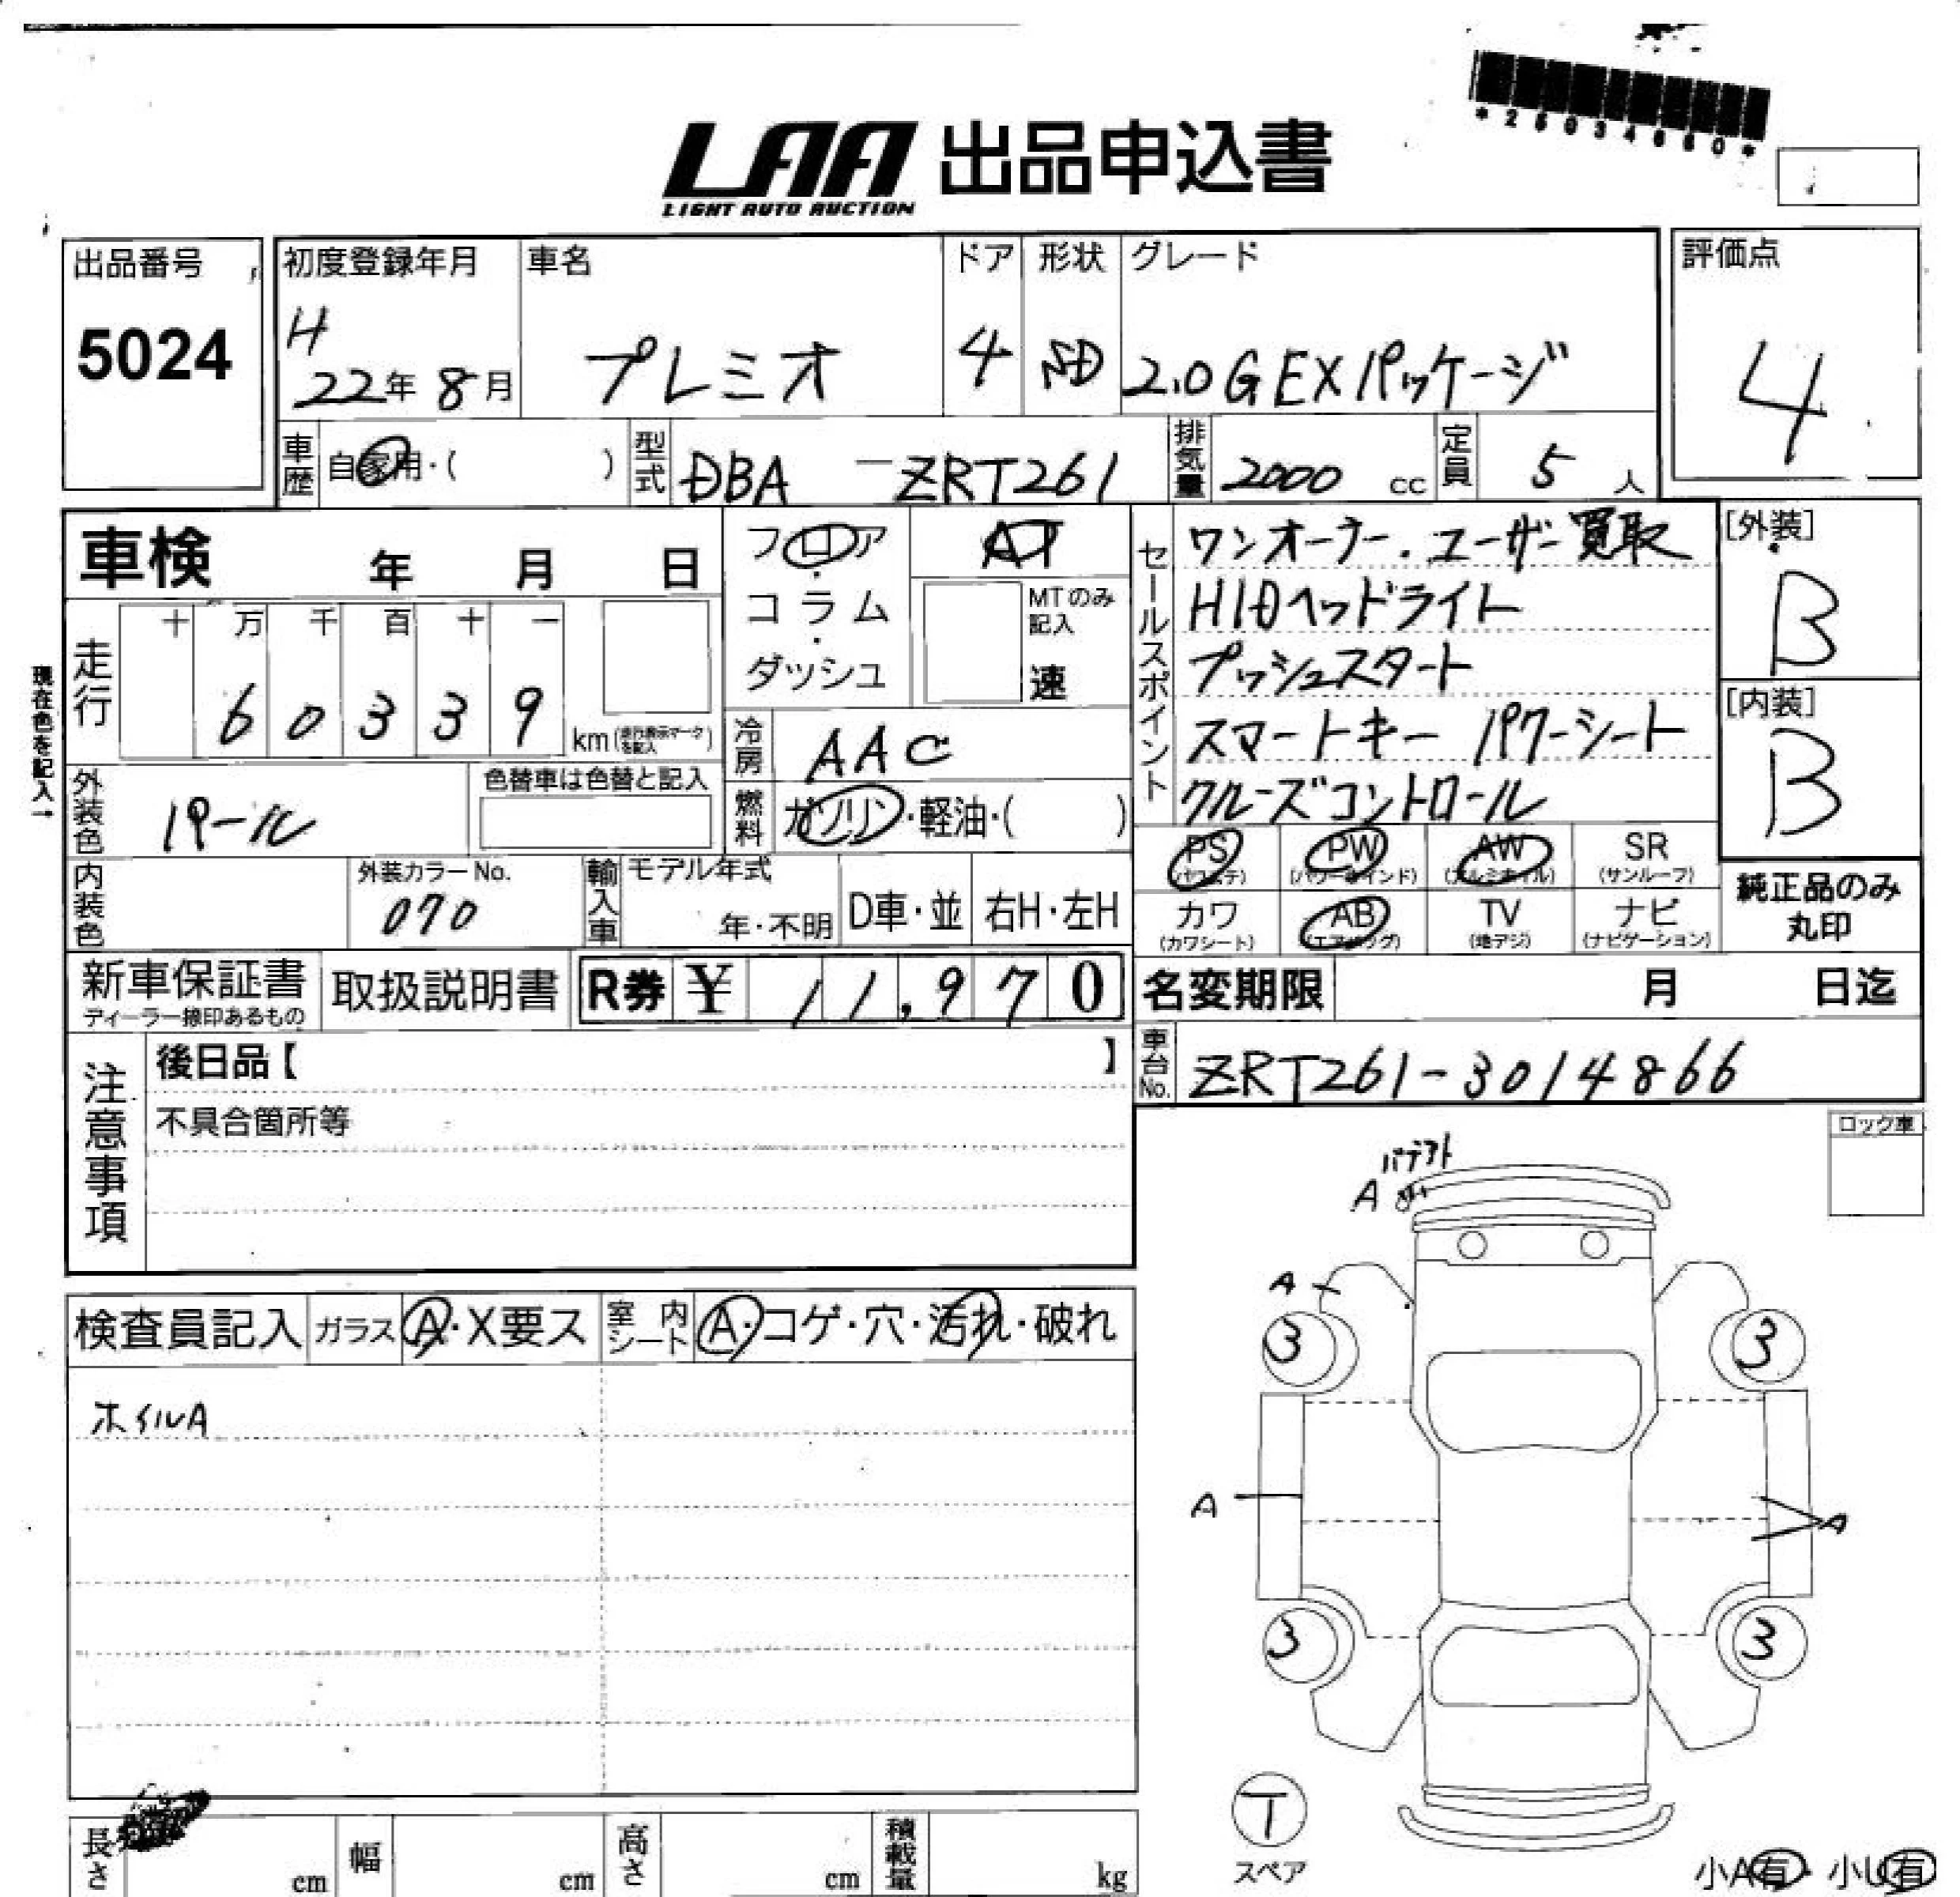 *25034660*
LAA 出品申込書
LIGHT AUTO AUCTION
出品番号
5024
初度登録年月
H
22年 8月
車名
プレミオ
ドア
4
形状
SD
グレード
2.0G EXパッケージ
評価点
4
車歴
自家用・( )
型式
DBA-ZRT261
排気量
2000 cc
定員
5 人
車検 年 月 日
フロア
・
コラム
・
ダッシュ
AT
MTのみ
記入
速
セールスポイント
ワンオーナー.ユーザー買取
HIDヘッドライト
プッシュスタート
スマートキー パワーシート
クルーズコントロール
[外装]
B
[内装]
B
現在色を記入→
走行
十 万 千 百 十 一
6 0 3 3 9
km(走行表示マークを記入)
冷房
AAC
外装色
パール
色替車は色替と記入
燃料
ガソリン・軽油・( )
PS
(パワステ)
PW
(パワーウインド)
AW
(アルミホイル)
SR
(サンルーフ)
カワ
(カワシート)
AB
(エアバッグ)
TV
(地デジ)
ナビ
(ナビゲーション)
純正品のみ
丸印
内装色
外装カラーNo.
070
輸入車
モデル年式
年・不明
D車・並
右H・左H
新車保証書
ディーラー捺印あるもの
取扱説明書
R券 ¥ 11,970
名変期限 月 日迄
車台No.
ZRT261-3014866
注意事項
後日品【 】
不具合箇所等
ロック車
検査員記入
ガラス
A・X要ス
室内シート
A・コゲ・穴・汚れ・破れ
ホイルA
A
A
3
3
A
A
3
3
T
スペア
長さ cm
幅 cm
高さ cm
積載量 kg
小A有・小U有